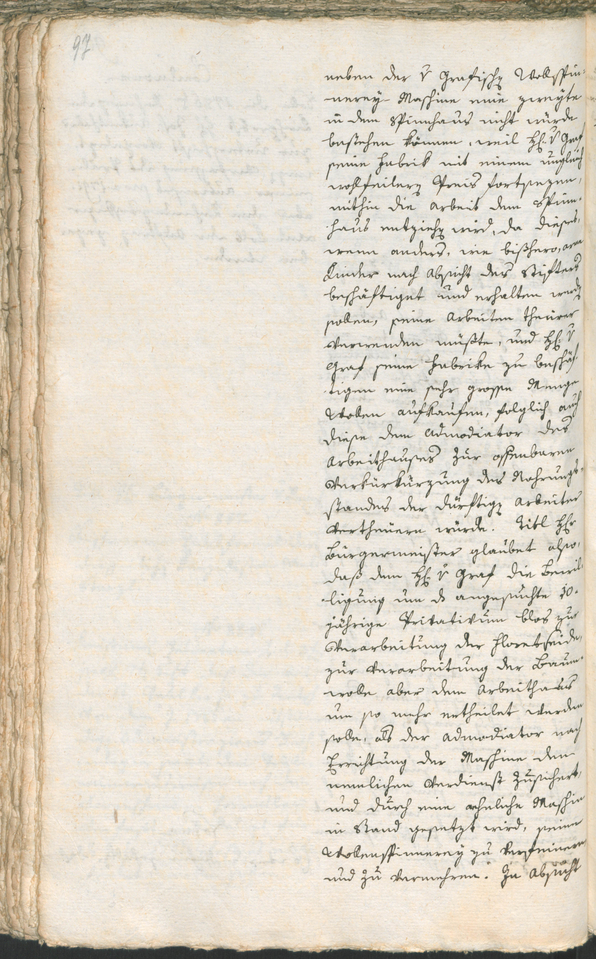 97
neben der v Grafischen Wollspin-
nerey Maschine eine zweyte
in dem Spinnhaus nicht würde
bestehen können, weil H. v Graf
seine Fabrik mit einem ungleich
wolfeilern Preis fortsezen,
mithin die Arbeit dem Spinn-
haus entziehen wird, da dieses,
wenn anders, wie bißhero, arme
Kinder nach Absicht des Stifters
beschäftiget und erhalten werden
sollen, seine Arbeiten theurer
verwenden müßte, und H. v
Graf seine Fabrike zu beschäf-
tigen eine sehr grosse Menge
Wollen aufkaufen, folglich auch
diese dem Admodiator des
Arbeithauses zur offenbaren
Verkürkürzung des Nahrungs-
standes der dürftigen Arbeiter
vertheuern würde. Titl Hr
Bürgermeister glaubet also,
daß dem H. v Graf die Bewil-
ligung um das angesuchte 10-
jährige Privativum blos zur
Verarbeitung der Floretseide,
zur Verarbeitung der Baum-
wolle aber dem Arbeithaus
um so mehr ertheilet werden
solle, als der Admodiator nach
Errichtung der Maschine den
nemlichen Verdienst zusichert,
und durch eine ähnliche Maschin
in Stand gesetzt wird, seine
Wollenspinnerey zu verfeinern
und zu vermehren. In Absicht